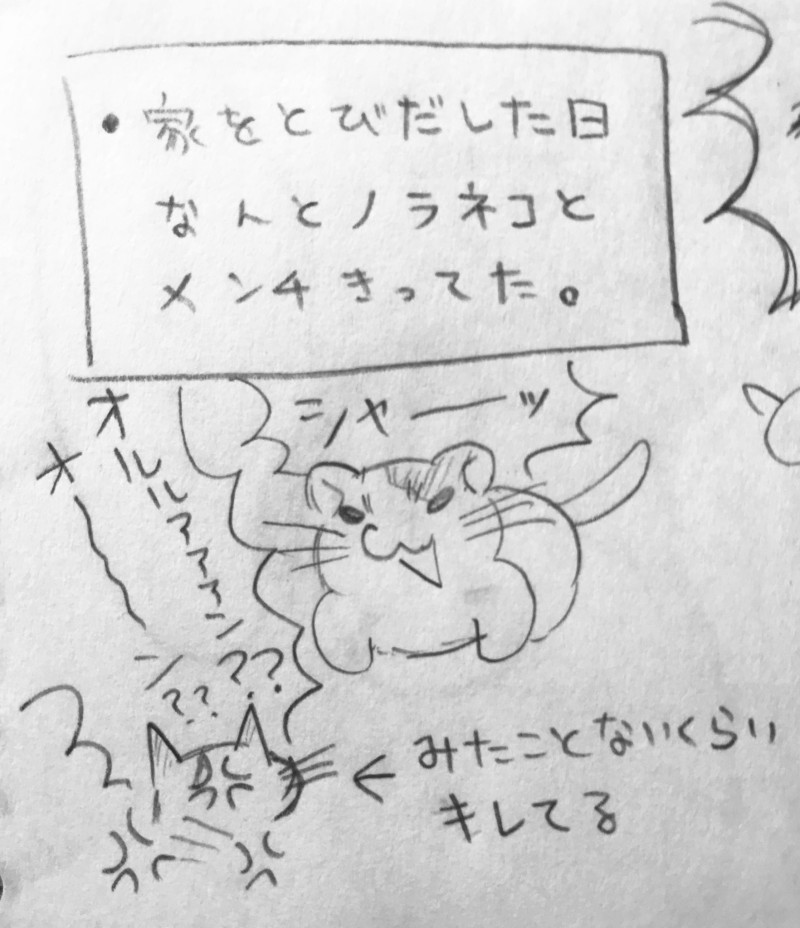 • 家をとびだした日
なんとノラネコと
メンチきってた。
シャーッ
オルルァァァン
オーン
??
??
← みたことないくらい
キレてる